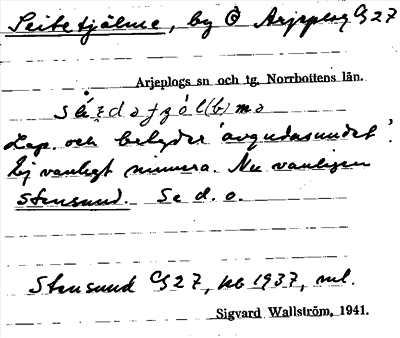 Seitetjålme, by Arjeplog G27
Arjeplogs sn och tg, Norrbottens län.
Lap. och betyder 'avgudasundet'.
Ej vanligt numera. Nu vanligen
Stensund. Se d. o.
Stensund G27, kb 1937, ml.
Sigvard Wallström, 1941.